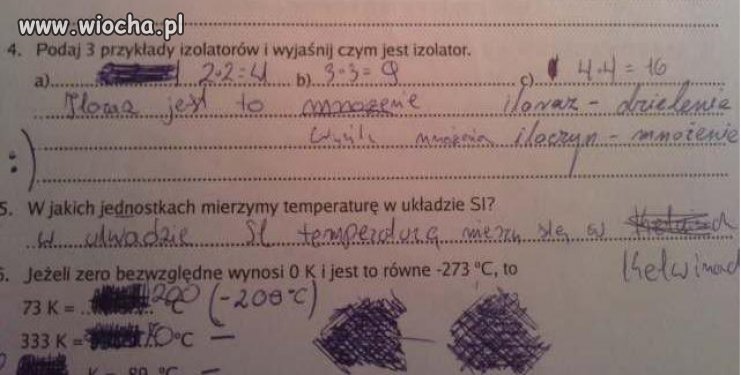 www.wiocha.pl
4. Podaj 3 przykłady izolatorów i wyjaśnij czym jest izolator.
a) 2·2=4 b) 3·3=9 c) 4·4=16
jest to mnożenie iloraz - dzielenie
mnożenia iloczyn - mnożenie
:)
5. W jakich jednostkach mierzymy temperaturę w układzie SI?
w układzie SI temperaturą mierzy się w
Kelwinach
6. Jeżeli zero bezwzględne wynosi 0 K i jest to równe -273 °C, to
73 K = 200 °C (-200°C)
333 K = °C -
K = 89 °C -